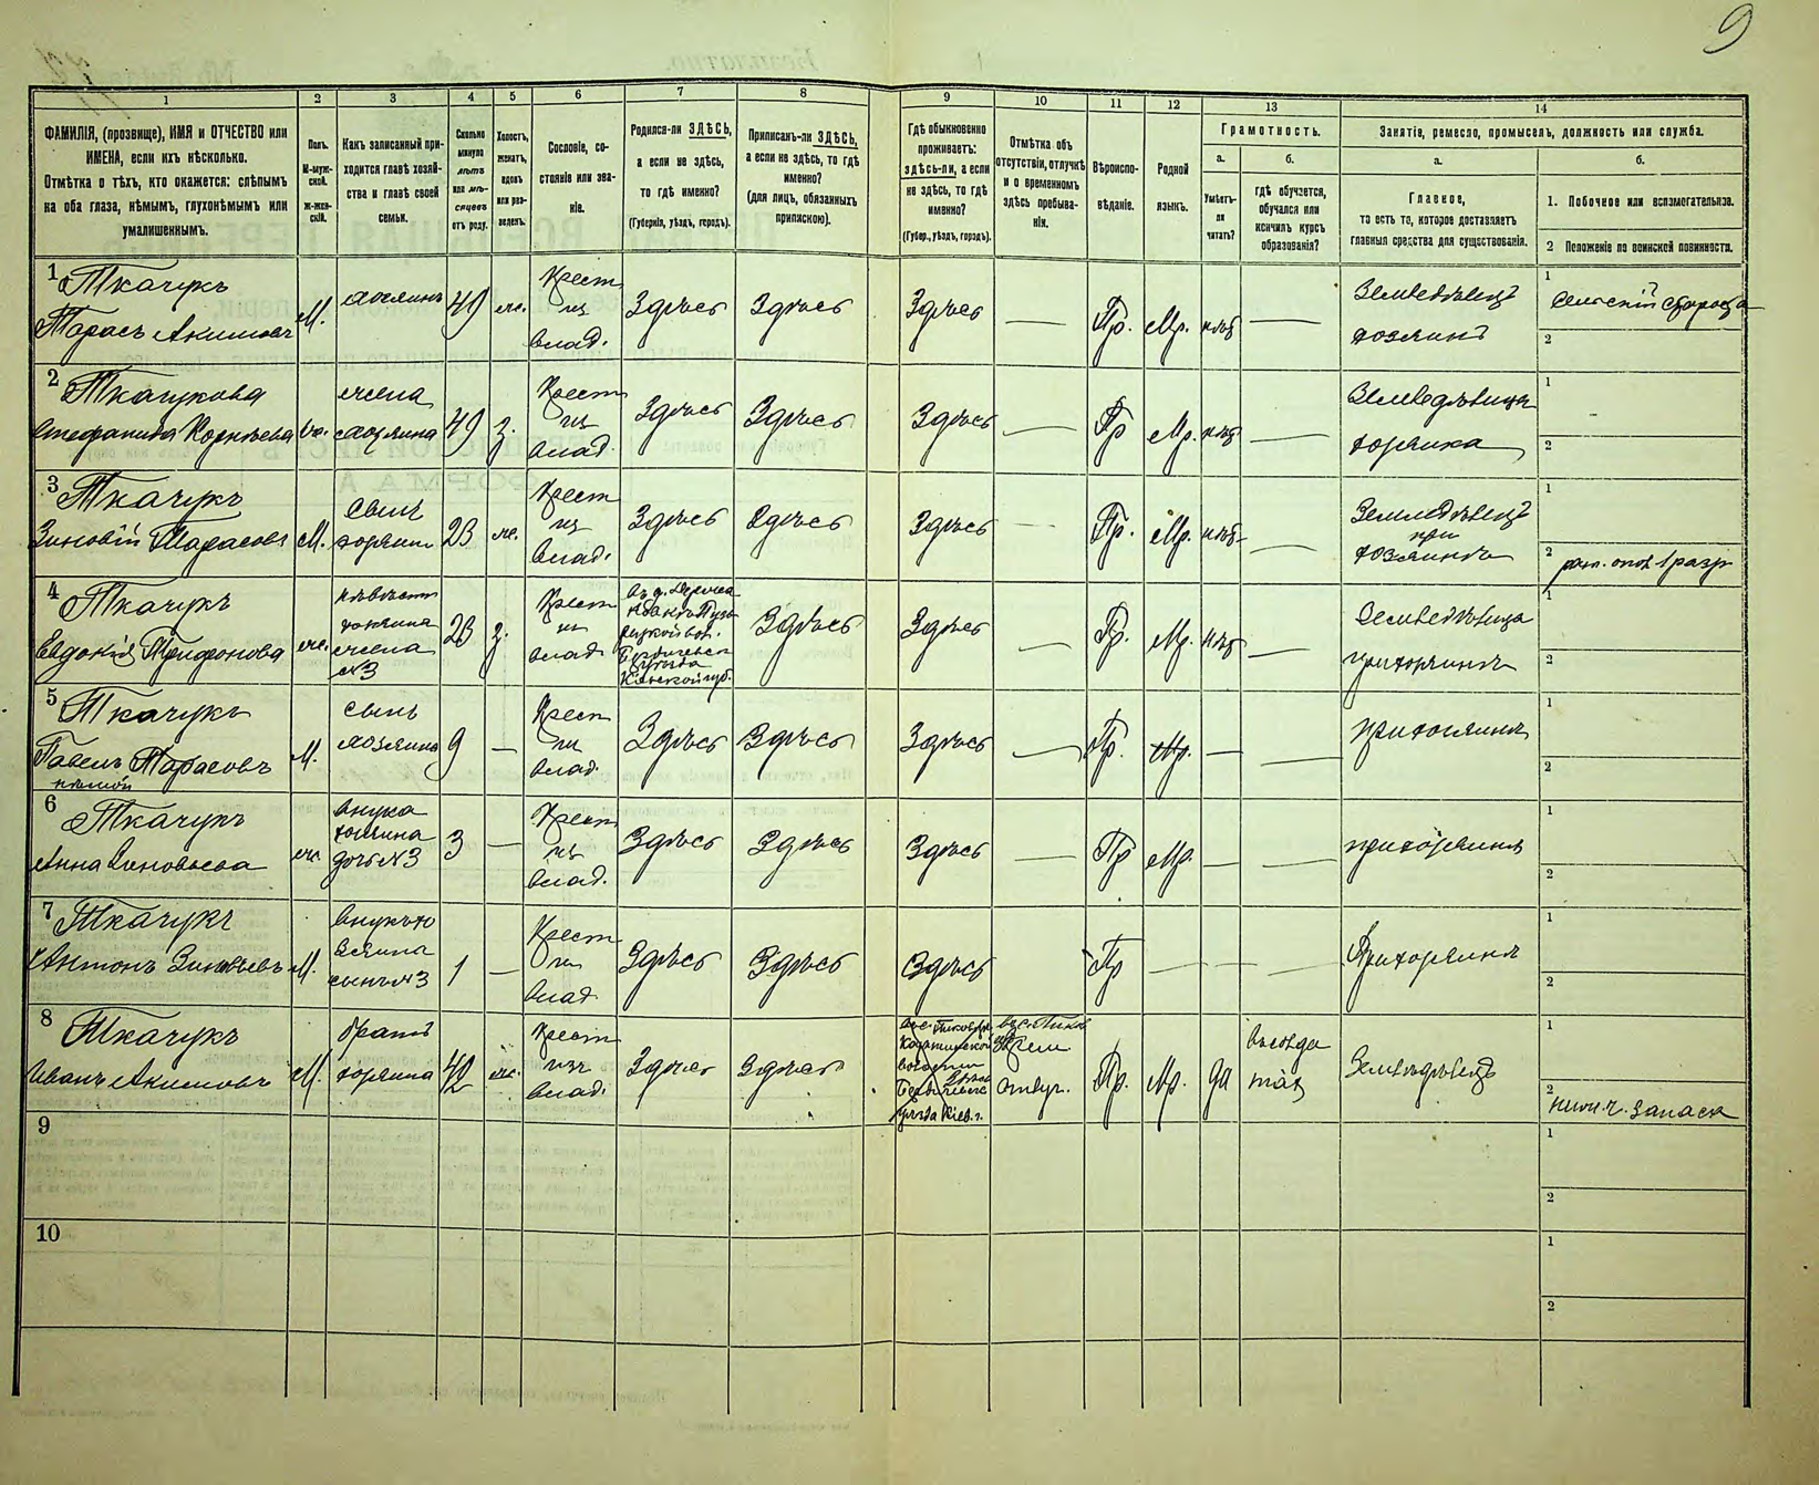 9
1 2 3 4 5 6 7 8 9 10 11 12 13 14
ФАМИЛІЯ, (прозвище), ИМЯ и ОТЧЕСТВО или
ИМЕНА, если ихъ нѣсколько.
Отмѣтка о тѣхъ, кто окажется: слѣпымъ
на оба глаза, нѣмымъ, глухонѣмымъ или
умалишеннымъ.
Полъ.
М-муж-
ской.
Ж-жен-
скій.
Какъ записанный при-
ходится главѣ хозяй-
ства и главѣ своей
семьи.
Сколько
минуло
лѣтъ
или мѣ-
сяцевъ
отъ роду.
Холостъ,
женатъ,
вдовъ
или раз-
веденъ.
Сословіе, со-
стояніе или зва-
ніе.
Родился-ли ЗДѢСЬ,
а если не здѣсь,
то гдѣ именно?
(Губернія, уѣздъ, городъ).
Приписанъ-ли ЗДѢСЬ,
а если не здѣсь, то гдѣ
именно?
(для лицъ, обязанныхъ
припискою).
Гдѣ обыкновенно
проживаетъ:
здѣсь-ли, а если
не здѣсь, то гдѣ
именно?
(Губер., уѣздъ, городъ).
Отмѣтка объ
отсутствіи, отлучкѣ
и о временномъ
здѣсь пребыва-
ніи.
Вѣроиспо-
вѣданіе.
Родной
языкъ.
Грамотность.
а.
Умѣетъ-
ли
читать?
б.
гдѣ обучается,
обучался или
кончилъ курсъ
образованія?
Занятіе, ремесло, промыселъ, должность или служба.
а.
Главное,
то есть то, которое доставляетъ
главныя средства для существованія.
б.
1. Побочное или вспомогательное.
2 Положеніе по воинской повинности.
1 Ткачукъ
Тарасъ Акимовъ
М.
хозяинъ
49
же.
Крест
из
влад.
Здѣсь
Здѣсь
Здѣсь
—
Пр.
Мр.
нѣт
—
Землѣделецъ
хозяинъ
1
Сельскій Староста
2
2 Ткачукова
Стефанида Корнѣева
же.
жена
хозяина
49
з.
Крест
из
влад.
Здѣсь
Здѣсь
Здѣсь
—
Пр
Мр.
нѣт
—
Земледѣлица
хозяйка
1
2
3 Ткачукъ
Зиновій Тарасовъ
М.
сынъ
хозяин
23
же.
Крест
из
влад.
Здѣсь
Здѣсь
Здѣсь
—
Пр.
Мр.
нѣт
—
Земледѣлецъ
при
хозяинѣ
1
2 рат. опол. 1 разр
4 Ткачукъ
Евдокія Трифонова
же.
невѣстк
хозяина
жена
№3
23
з.
Крест
из
влад
Бердичевск
уѣзда
Кіевской губ.
Здѣсь
Здѣсь
—
Пр.
Мр.
нѣт
—
Земледѣлица
при хозяинѣ
1
2
5 Ткачукъ
Павелъ Тарасовъ
нѣмой
М.
сынъ
хозяина
9
—
Крест
из
влад.
Здѣсь
Здѣсь
Здѣсь
—
Пр.
Мр.
—
—
при хозяинѣ
1
2
6 Ткачукъ
Анна Зиновьева
же.
внука
хозяина
дочь №3
3
—
Крест
из
влад.
Здѣсь
Здѣсь
Здѣсь
—
Пр
Мр.
—
—
при хозяинѣ
1
2
7 Ткачукъ
Антонъ Зиновьевъ
М.
внукъ хо
зяина
сынъ №3
1
—
Крест
из
влад.
Здѣсь
Здѣсь
Здѣсь
Пр
—
—
—
При хозяинѣ
1
2
8 Ткачукъ
Иванъ Акимовъ
М.
братъ
хозяина
42
же.
Крест
изъ
влад.
Здѣсь
Здѣсь
волости
уѣзда Кіев. г.
Пр.
Мр.
да
Земледѣлецъ
1
2 нижн. ч. запаса
9
1
2
10
1
2